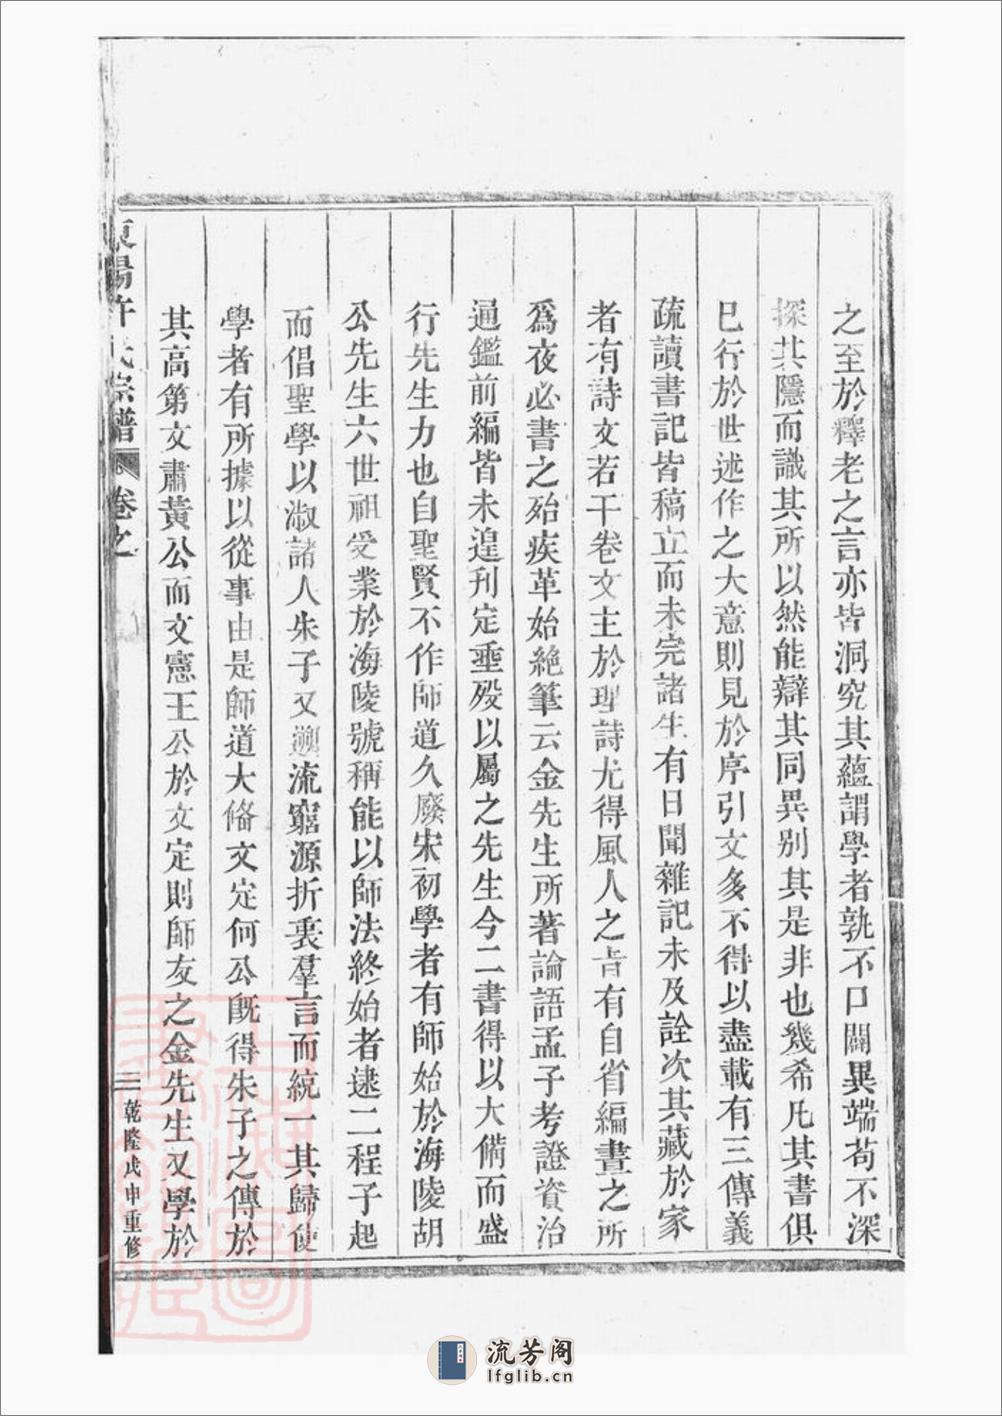 之至於釋老之言亦皆洞究其蘊謂學者孰不口闢異端苟不深
探其隱而識其所以然能辯其同異别其是非也幾希凡其書俱
已行於世述作之大意則見於序引文多不得以盡載有三傳義
疏讀書記皆稿立而未完諸生有日聞雜記未及詮次其藏於家
者有詩文若干卷文主於理詩尤得風人之旨有自省編晝之所
爲夜必書之殆疾革始絶筆云金先生所著論語孟子考證資治
通鑑前編皆未遑刊定垂殁以屬之先生今二書得以大備而盛
行先生力也自聖賢不作師道久廢宋初學者有師始於海陵胡
公先生六世祖受業於海陵號稱能以師法終始者逮二程子起
而倡聖學以淑諸人朱子又遡流窮源折衷羣言而統一其歸使
學者有所據以從事由是師道大俻文定何公旣得朱子之傳於
其高第文肅黃公而文憲王公於文定則師友之金先生又學於
東陽許氏宗譜 卷之 三 乾隆戊申重修
流芳阁
lfglib.cn